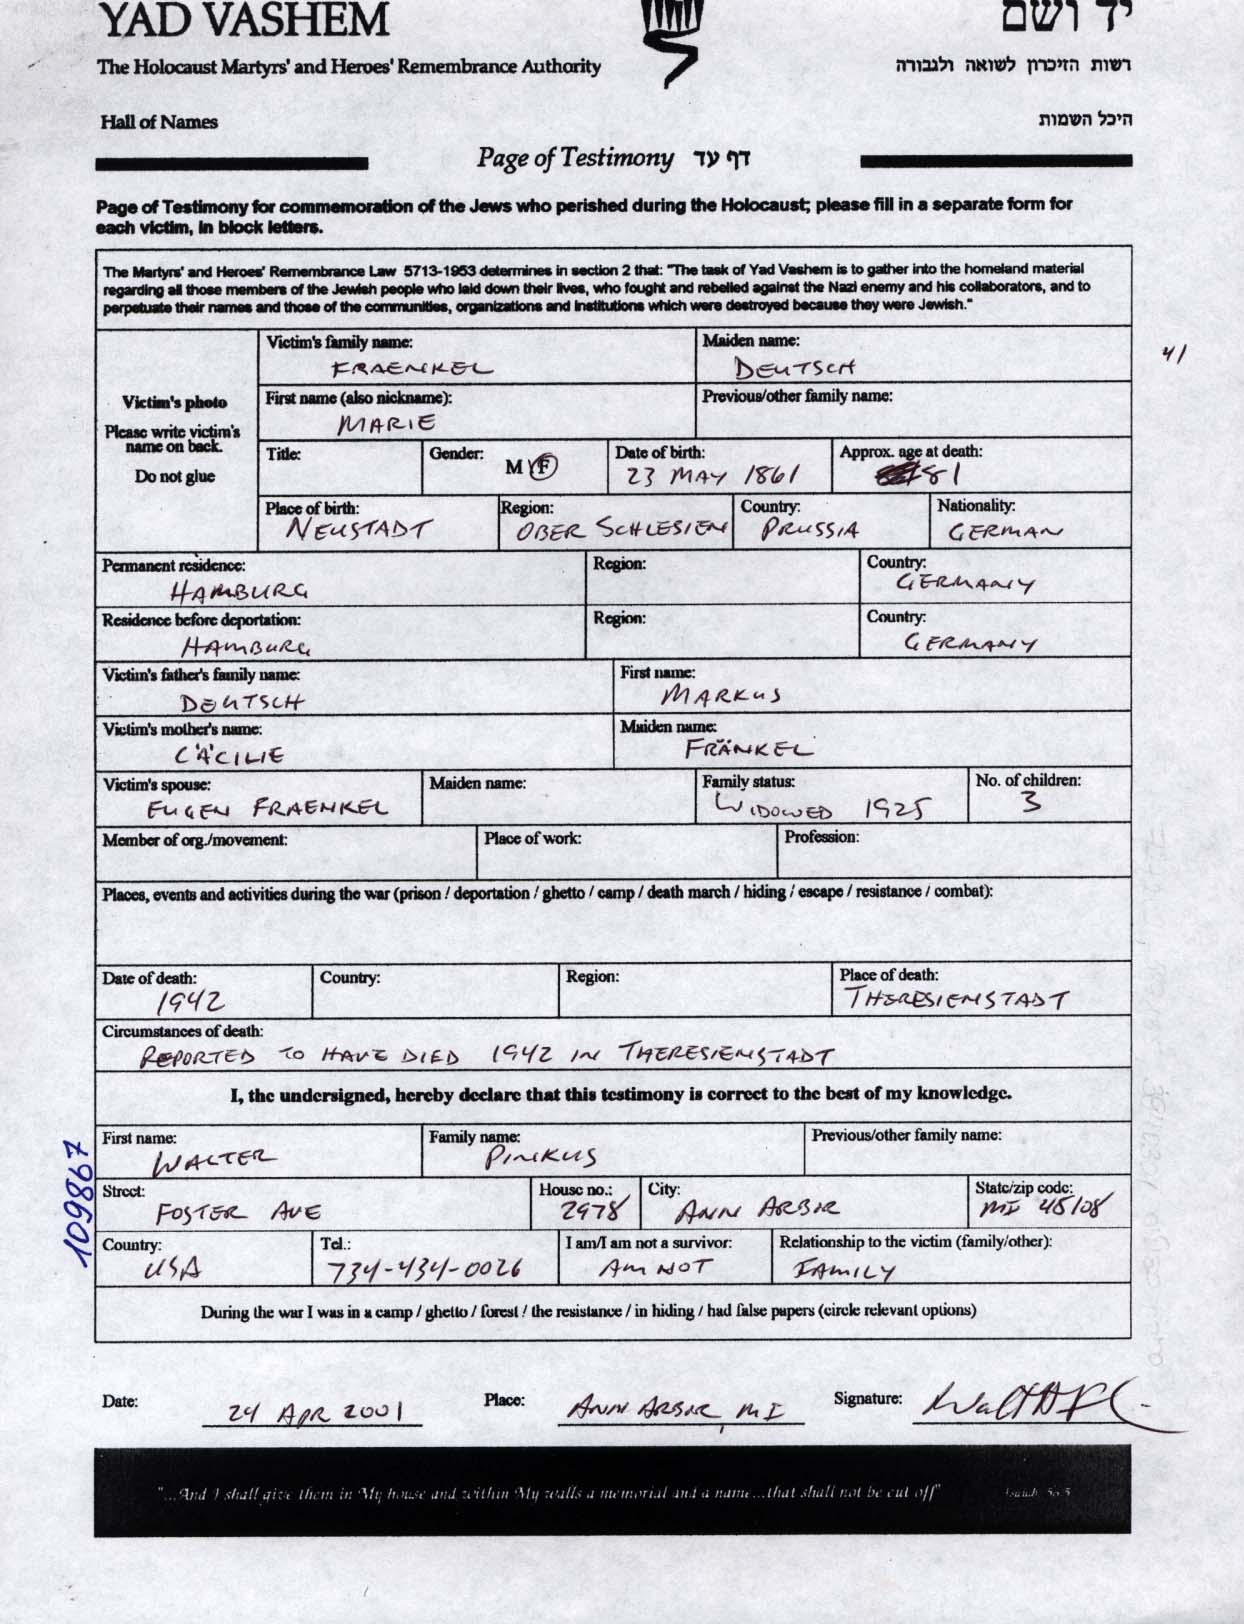 YAD VASHEM
יד ושם
The Holocaust Martyrs' and Heroes' Remembrance Authority
רשות הזיכרון לשואה ולגבורה
Hall of Names
היכל השמות
Page of Testimony דף עד
Page of Testimony for commemoration of the Jews who perished during the Holocaust; please fill in a separate form for
each victim, in block letters.
The Martyrs' and Heroes' Remembrance Law 5713-1953 determines in section 2 that: "The task of Yad Vashem is to gather into the homeland material
regarding all those members of the Jewish people who laid down their lives, who fought and rebelled against the Nazi enemy and his collaborators, and to
perpetuate their names and those of the communities, organizations and institutions which were destroyed because they were Jewish."
41
Victim's photo
Please write victim's
name on back.
Do not glue
Victim's family name:
FRAENKEL
Maiden name:
DEUTSCH
First name (also nickname):
MARIE
Previous/other family name:
Title:
Gender:
M / F
Date of birth:
23 MAY 1861
Approx. age at death:
81
Place of birth:
NEUSTADT
Region:
OBER SCHLESIEN
Country:
PRUSSIA
Nationality:
GERMAN
Permanent residence:
HAMBURG
Region:
Country:
GERMANY
Residence before deportation:
HAMBURG
Region:
Country:
GERMANY
Victim's father's family name:
DEUTSCH
First name:
MARKUS
Victim's mother's name:
CÄCILIE
Maiden name:
FRÄNKEL
Victim's spouse:
EUGEN FRAENKEL
Maiden name:
Family status:
WIDOWED 1925
No. of children:
3
Member of org./movement:
Place of work:
Profession:
Places, events and activities during the war (prison / deportation / ghetto / camp / death march / hiding / escape / resistance / combat):
Date of death:
1942
Country:
Region:
Place of death:
THERESIENSTADT
Circumstances of death:
REPORTED TO HAVE DIED 1942 IN THERESIENSTADT
I, the undersigned, hereby declare that this testimony is correct to the best of my knowledge.
First name:
WALTER
Family name:
PINKUS
Previous/other family name:
Street:
FOSTER AVE
House no.:
2978
City:
ANN ARBOR
State/zip code:
MI 48108
Country:
USA
Tel.:
734-434-0026
I am/I am not a survivor:
AM NOT
Relationship to the victim (family/other):
FAMILY
During the war I was in a camp / ghetto / forest / the resistance / in hiding / had false papers (circle relevant options)
109867
Date:
24 APR 2001
Place:
ANN ARBOR, MI
Signature:
"...And I shall give them in My house and within My walls a memorial and a name...that shall not be cut off"
Isaiah, 56:5